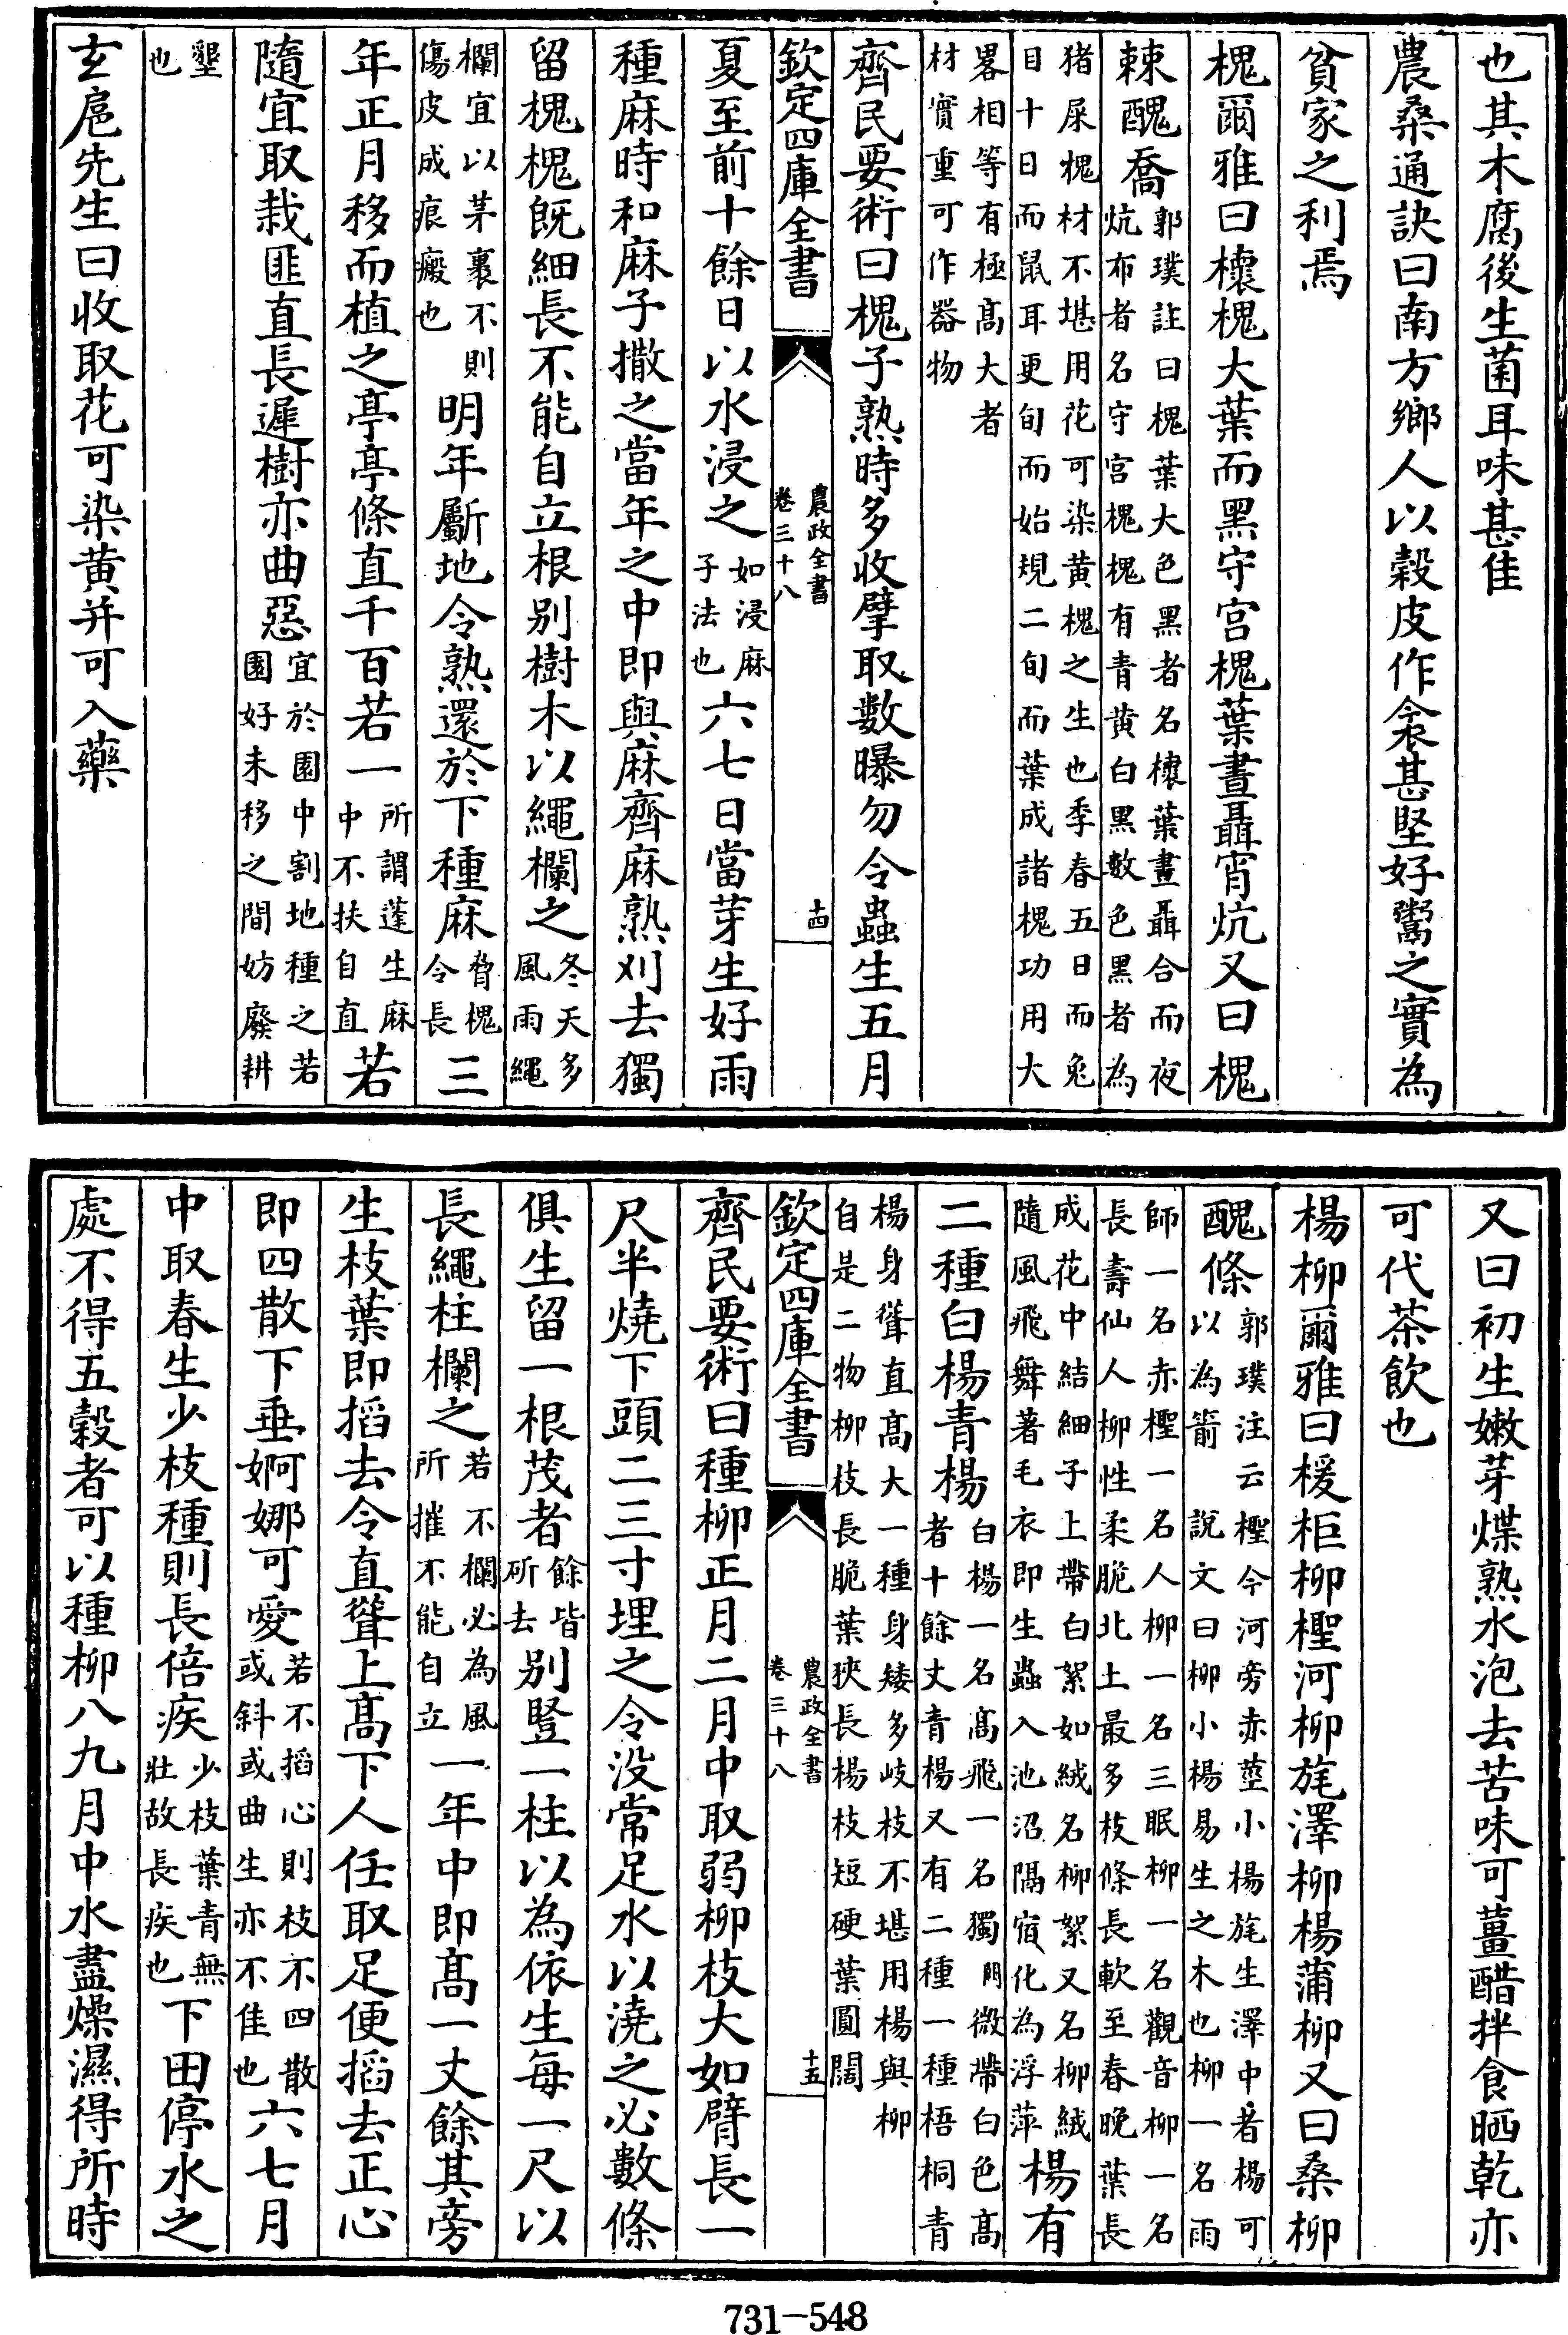 也其木腐後生菌耳味甚佳
農桑通訣曰南方鄉人以穀皮作衾甚堅好鬻之實為
貧家之利焉
槐爾雅曰櫰槐大葉而黑守宫槐葉晝聶宵炕又曰槐
棘醜喬郭璞註曰槐葉大色黑者名櫰葉晝聶合而夜炕布者名守宫槐槐有青黄白黑數色黑者為
猪屎槐材不堪用花可染黄槐之生也季春五日而兔目十日而鼠耳更旬而始規二旬而葉成諸槐功用大
畧相等有極高大者材實重可作器物
齊民要術曰槐子熟時多收擘取數曝勿令蟲生五月
欽定四庫全書 農政全書卷三十八 十四
夏至前十餘日以水浸之如浸麻子法也六七日當芽生好雨
種麻時和麻子撒之當年之中即與麻齊麻熟刈去獨
留槐槐既細長不能自立根别樹木以繩欄之冬天多風雨繩
欄宜以茅裹不則傷皮成痕瘢也明年斸地令熟還於下種麻脅槐令長三
年正月移而植之亭亭條直千百若一所謂蓬生麻中不扶自直若
隨宜取栽匪直長遲樹亦曲惡宜於園中割地種之若園好未移之間妨廢耕
墾也
玄扈先生曰收取花可染黄并可入藥
又曰初生嫩芽煠熟水泡去苦味可薑醋拌食晒乾亦
可代茶飲也
楊柳爾雅曰楥柜柳檉河柳旄澤柳楊蒲柳又曰桑柳
醜條郭璞注云檉今河旁赤莖小楊旄生澤中者楊可以為箭 說文曰柳小楊易生之木也柳一名雨
師一名赤檉一名人柳一名三眠柳一名觀音柳一名長壽仙人柳性柔脆北土最多枝條長軟至春晚葉長
成花中結細子上帶白絮如絨名柳絮又名柳絨隨風飛舞著毛衣即生蟲入池沼隔宿化為浮萍楊有
二種白楊青楊白楊一名髙飛一名獨揺微帶白色髙者十餘丈青楊又有二種一種梧桐青
楊身聳直髙大一種身矮多岐枝不堪用楊與柳自是二物柳枝長脆葉狹長楊枝短硬葉圓闊
欽定四庫全書 農政全書卷三十八 十五
齊民要術曰種柳正月二月中取弱柳枝大如臂長一
尺半燒下頭二三寸埋之令没常足水以澆之必數條
俱生留一根茂者餘皆斫去别豎一柱以為依生每一尺以
長繩柱欄之若不欄必為風所摧不能自立一年中即髙一丈餘其旁
生枝葉即掐去令直聳上髙下人任取足便掐去正心
即四散下垂婀娜可愛若不掐心則枝不四散或斜或曲生亦不佳也六七月
中取春生少枝種則長倍疾少枝葉青無壯故長疾也下田停水之
處不得五穀者可以種柳八九月中水盡燥濕得所時
731-548